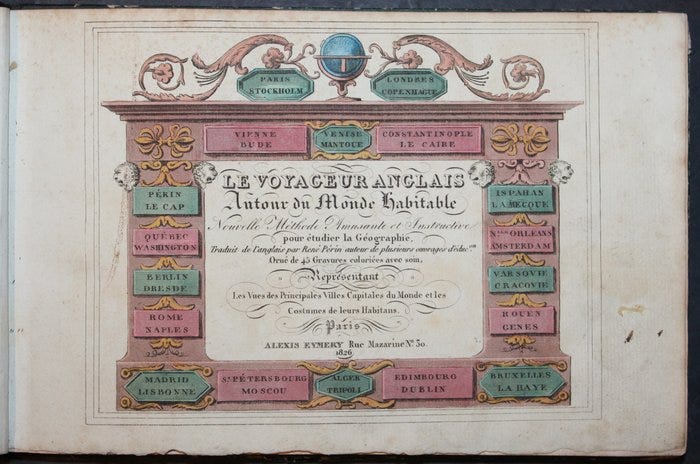 PARIS
STOCKHOLM
LONDRES
COPENHAGUE
VIENNE
BUDE
VENISE
MANTOUE
CONSTANTINOPLE
LE CAIRE
PÉKIN
LE CAP
QUÉBEC
WASHINGTON
BERLIN
DRESDE
ROME
NAPLES
LE VOYAGEUR ANGLAIS
Autour du Monde Habitable
Nouvelle Méthode Amusante et Instructive
pour étudier la Géographie,
Traduit de l'anglais par René Périn auteur de plusieurs ouvrages d'éduc.on
Orné de 45 Gravures coloriées avec soin,
Représentant
Les Vues des Principales Villes Capitales du Monde et les
Costumes de leurs Habitans.
Paris
ALEXIS EYMERY Rue Mazarine No. 30.
1826
ISPAHAN
LA MECQUE
N.lle ORLÉANS
AMSTERDAM
VARSOVIE
CRACOVIE
ROUEN
GENES
MADRID
LISBONNE
St. PÉTERSBOURG
MOSCOU
ALGER
TRIPOLI
EDIMBOURG
DUBLIN
BRUXELLES
LA HAYE